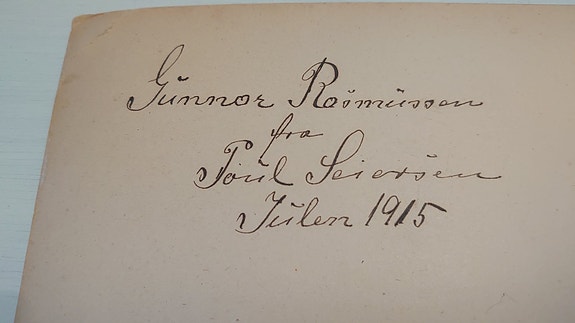 Gunnor Rasmussen
fra
Poul Seiersen
Julen 1915